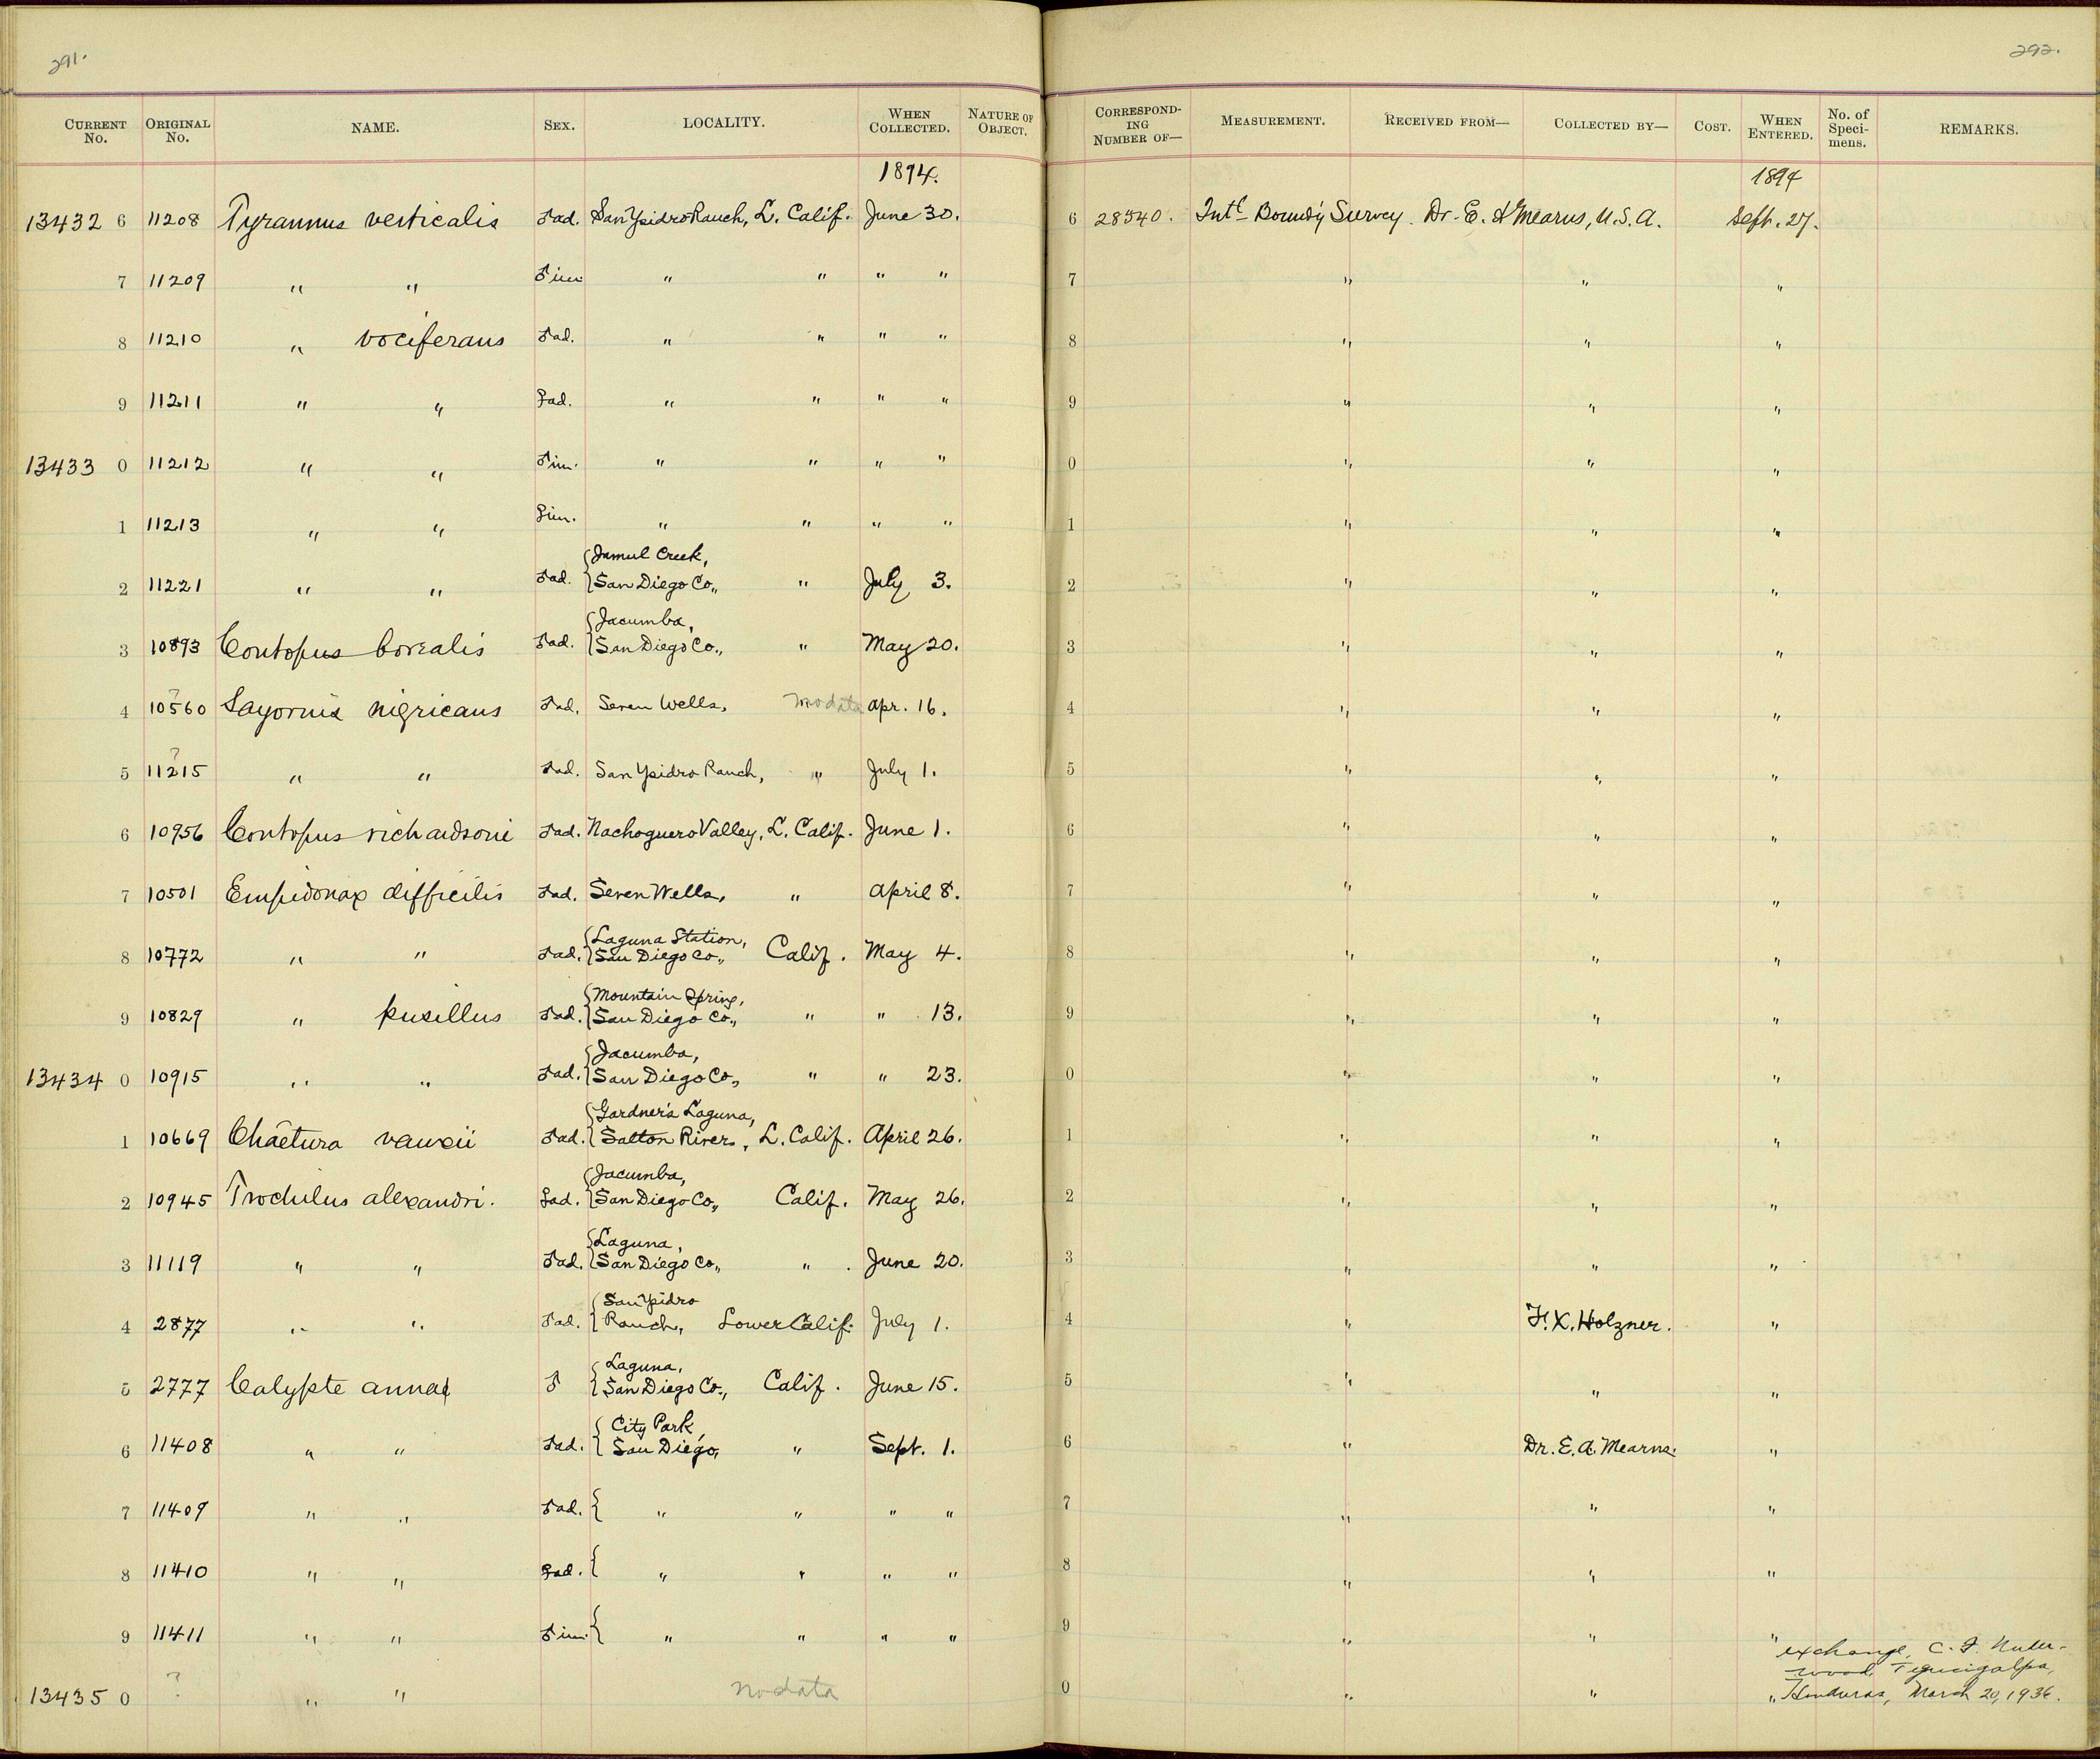 291.
292.
CURRENT No. ORIGINAL No. NAME. SEX. LOCALITY. WHEN COLLECTED. NATURE OF OBJECT. CORRESPONDING NUMBER OF— MEASUREMENT. RECEIVED FROM— COLLECTED BY— COST. WHEN ENTERED. No. of Specimens. REMARKS.
1894. 1894
13432 6 11208 Tyrannus verticalis ♂ad. San Ysidro Ranch, L. Calif. June 30. 6 28540. Intl Bound'y Survey. Dr. E. A Mearns, U.S.A. Sept. 27.
7 11209 " " ♂im " " " " 7 " " "
8 11210 " vociferans ♂ad. " " " " 8 " " "
9 11211 " " ♀ad. " " " " 9 " " "
13433 0 11212 " " ♂im. " " " " 0 " " "
1 11213 " " ♀im. " " " " 1 " " "
2 11221 " " ♂ad. { Jamul Creek, San Diego Co., " July 3. 2 " " "
3 10893 Contopus borealis ♂ad. { Jacumba, San Diego Co., " May 20. 3 " " "
4 10560 ? Sayornis nigricans ♂ad. Seven Wells, no data Apr. 16. 4 " " "
5 11215 ? " " ♂ad. San Ysidro Ranch, " July 1. 5 " " "
6 10956 Contopus richardsonii ♂ad. Nachoguero Valley, L. Calif. June 1. 6 " " "
7 10501 Empidonax difficilis ♂ad. Seven Wells, " April 8. 7 " " "
8 10772 " " ♂ad. { Laguna Station, San Diego Co., Calif. May 4. 8 " " "
9 10829 " pusillus ♂ad. { Mountain Spring, San Diego Co., " " 13. 9 " " "
13434 0 10915 " " ♂ad. { Jacumba, San Diego Co., " " 23. 0 " " "
1 10669 Chaetura vauxii ♂ad. { Gardner's Laguna, Salton River, L. Calif. April 26. 1 " " "
2 10945 Trochilus alexandri. ♀ad. { Jacumba, San Diego Co., Calif. May 26. 2 " " "
3 11119 " " ♂ad. { Laguna, San Diego Co., " June 20. 3 " " "
4 2877 " " ♂ad. { San Ysidro Ranch, Lower Calif. July 1. 4 " F. X. Holzner. "
5 2777 Calypte anna ♂ { Laguna, San Diego Co., Calif. June 15. 5 " " "
6 11408 " " ♂ad. { City Park, San Diego, " Sept. 1. 6 " Dr. E. A. Mearns. "
7 11409 " " ♂ad. { " " " " 7 " " "
8 11410 " " ♀ad. { " " " " 8 " " "
9 11411 " " ♂im. { " " " " 9 " " "
13435 0 ? " " no data 0 " " " exchange, C. F. Underwood, Tegucigalpa, Honduras, March 20, 1936.